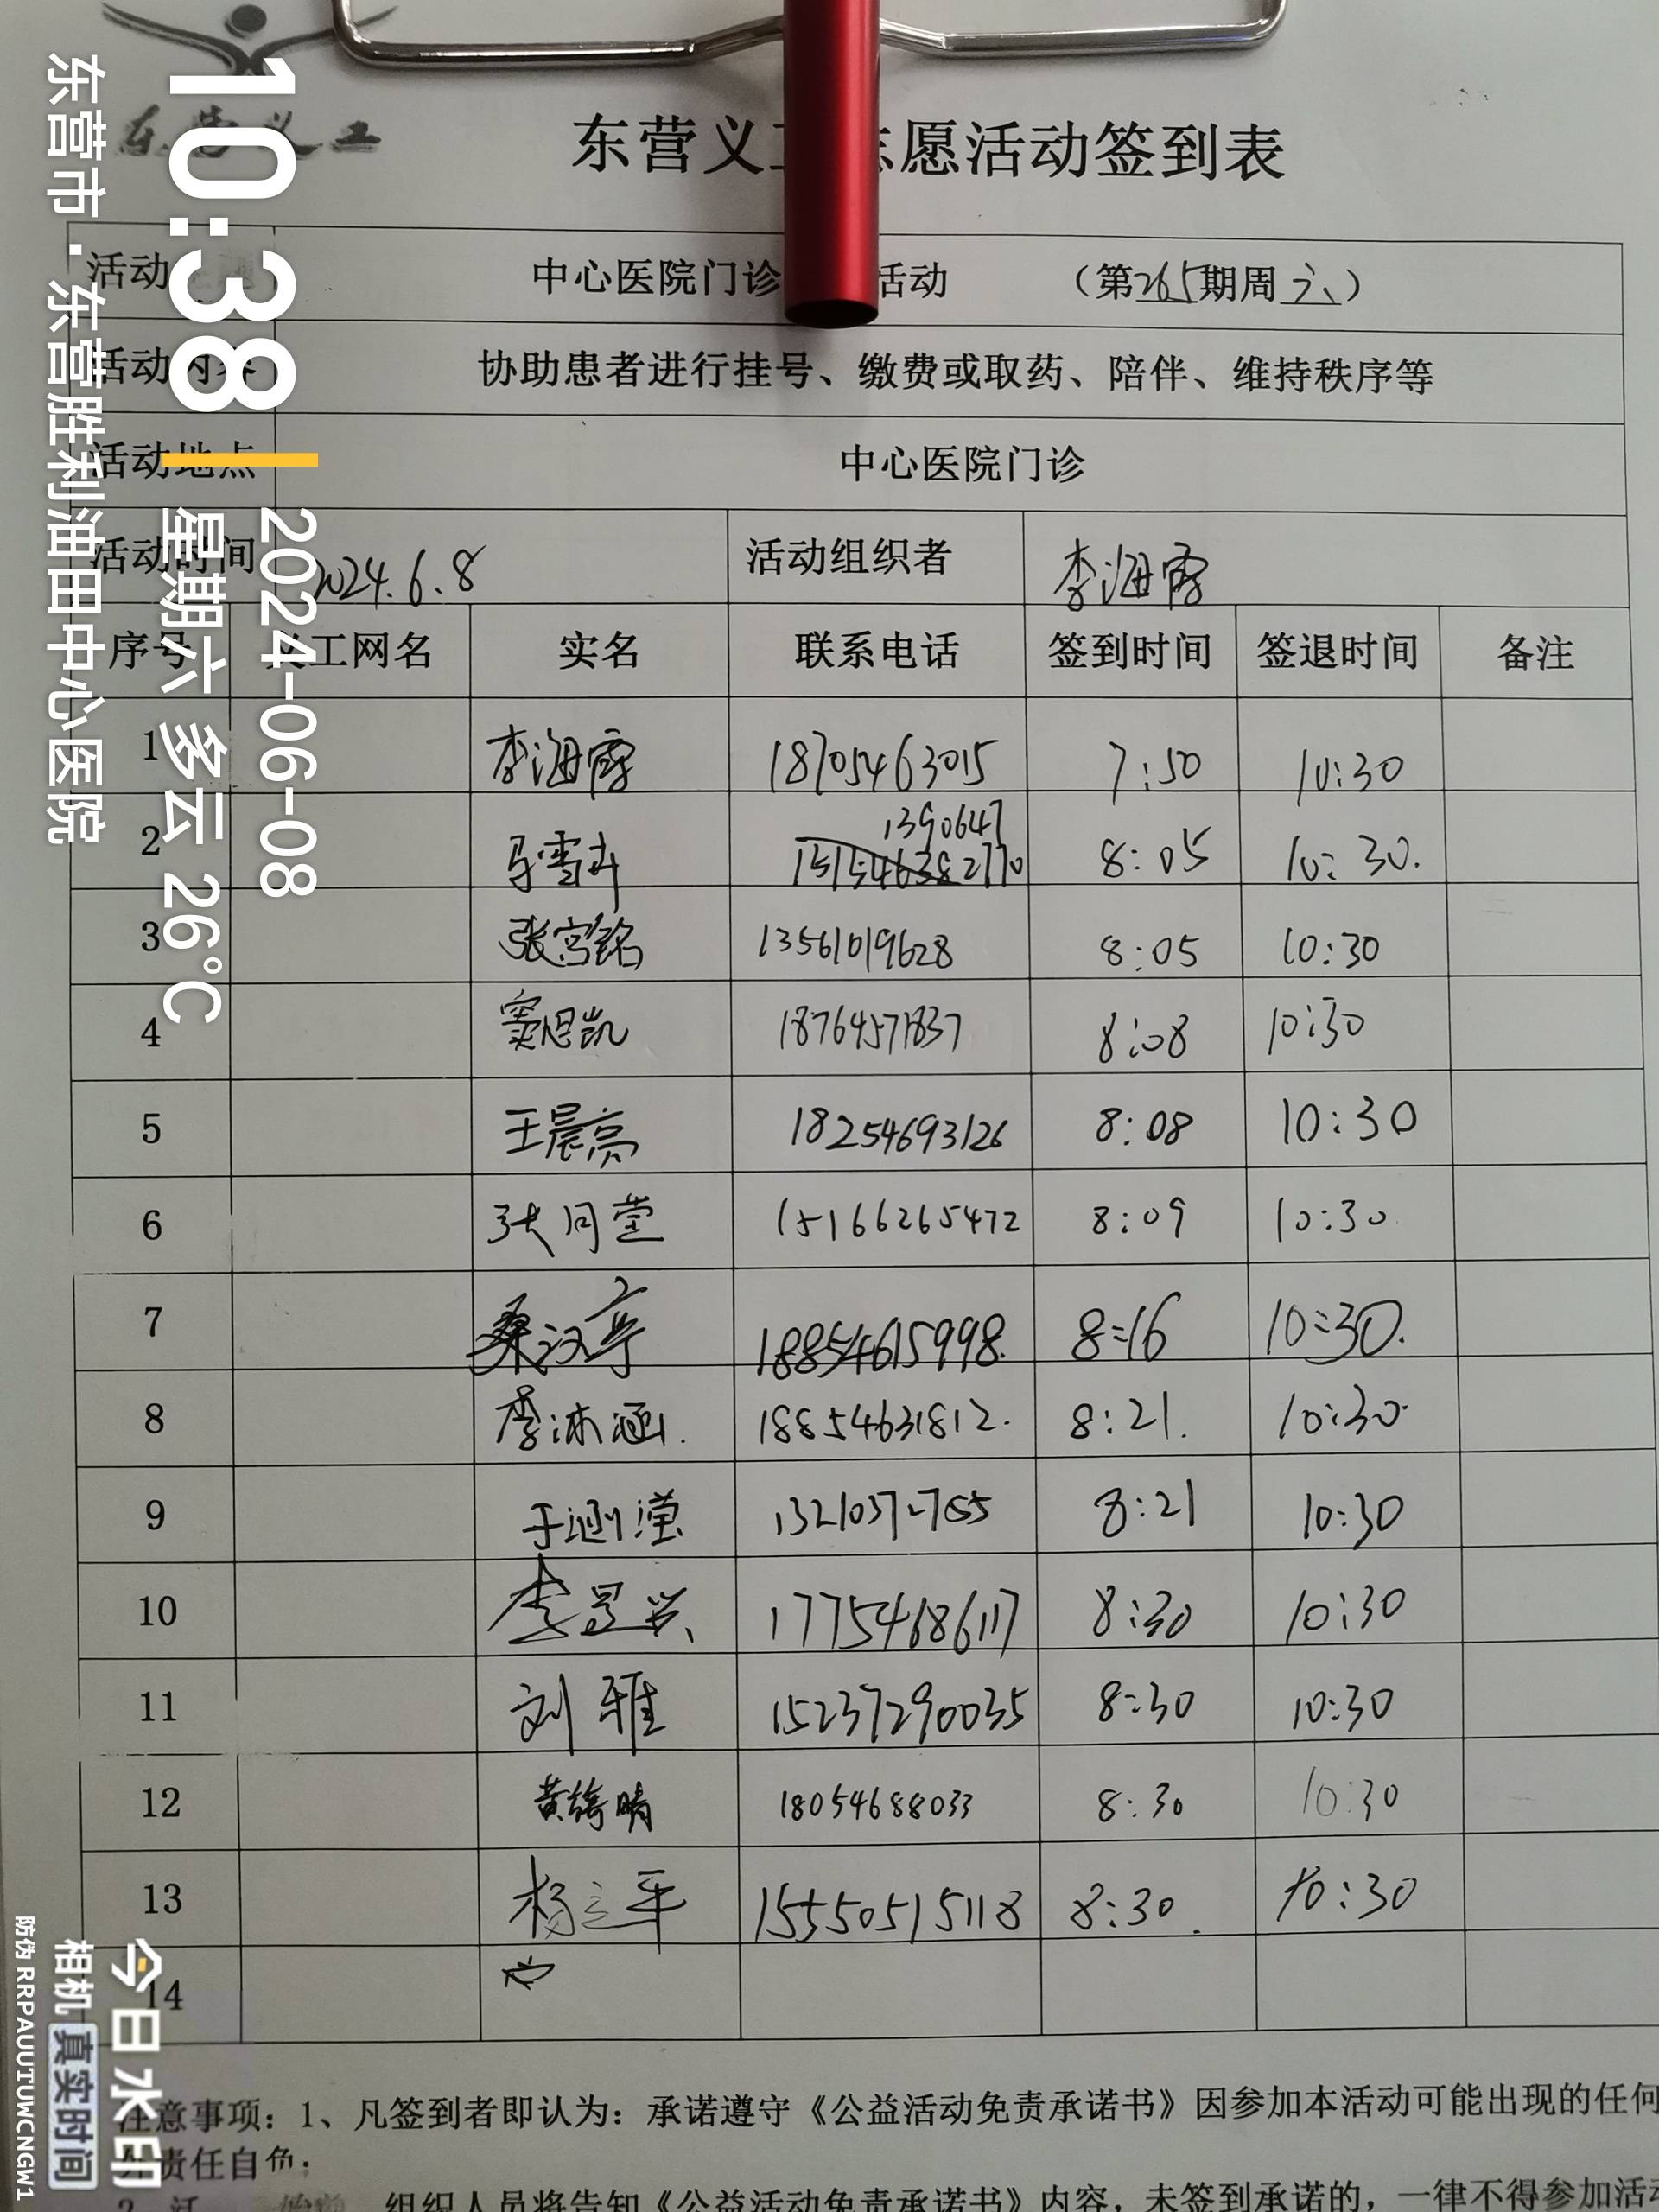 东营义工
东营义工志愿活动签到表
活动 中心医院门诊 活动 （第265期周六）
活动内容 协助患者进行挂号、缴费或取药、陪伴、维持秩序等
活动地点 中心医院门诊
活动时间 2024.6.8 活动组织者 李海霞
序号 义工网名 实名 联系电话 签到时间 签退时间 备注
1 李海霞 18705463015 7:50 10:30
1390647
2 2770 8:05 10:30.
3 13561019628 8:05 10:30
4 窦恩凯 18764571837 8:08 10:30
5 王晨亮 18254693126 8:08 10:30
6 张月莹 15166265472 8:09 10:30
7 桑汉亭 18854615998. 8:16 10:30.
8 李沐涵. 18854631812. 8:21. 10:30.
9 于涵滢 8:21 10:30
10 李昱兴 17754686117 8:30 10:30
11 刘雅 15237290035 8:30 10:30
12 黄绮晴 18054688033 8:30 10:30
13 杨立平 15550515118 8:30. 10:30
14
注意事项：1、凡签到者即认为：承诺遵守《公益活动免责承诺书》因参加本活动可能出现的任何
外责任自负.
组织人员将告知《公益活动免责承诺书》内容，未签到承诺的，一律不得参加活动
10:38
2024-06-08
星期六 多云 26°C
东营市·东营胜利油田中心医院
今日水印
相机 真实时间
防伪 RRPAUUTUWCNGW1